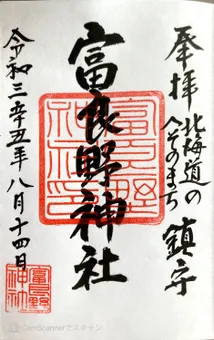 奉拝
北海道の
へそのまち
鎮守
富良野神社
富良野
神社印
令和三辛丑年八月十四日
富良野
神社
CamScannerでスキャン